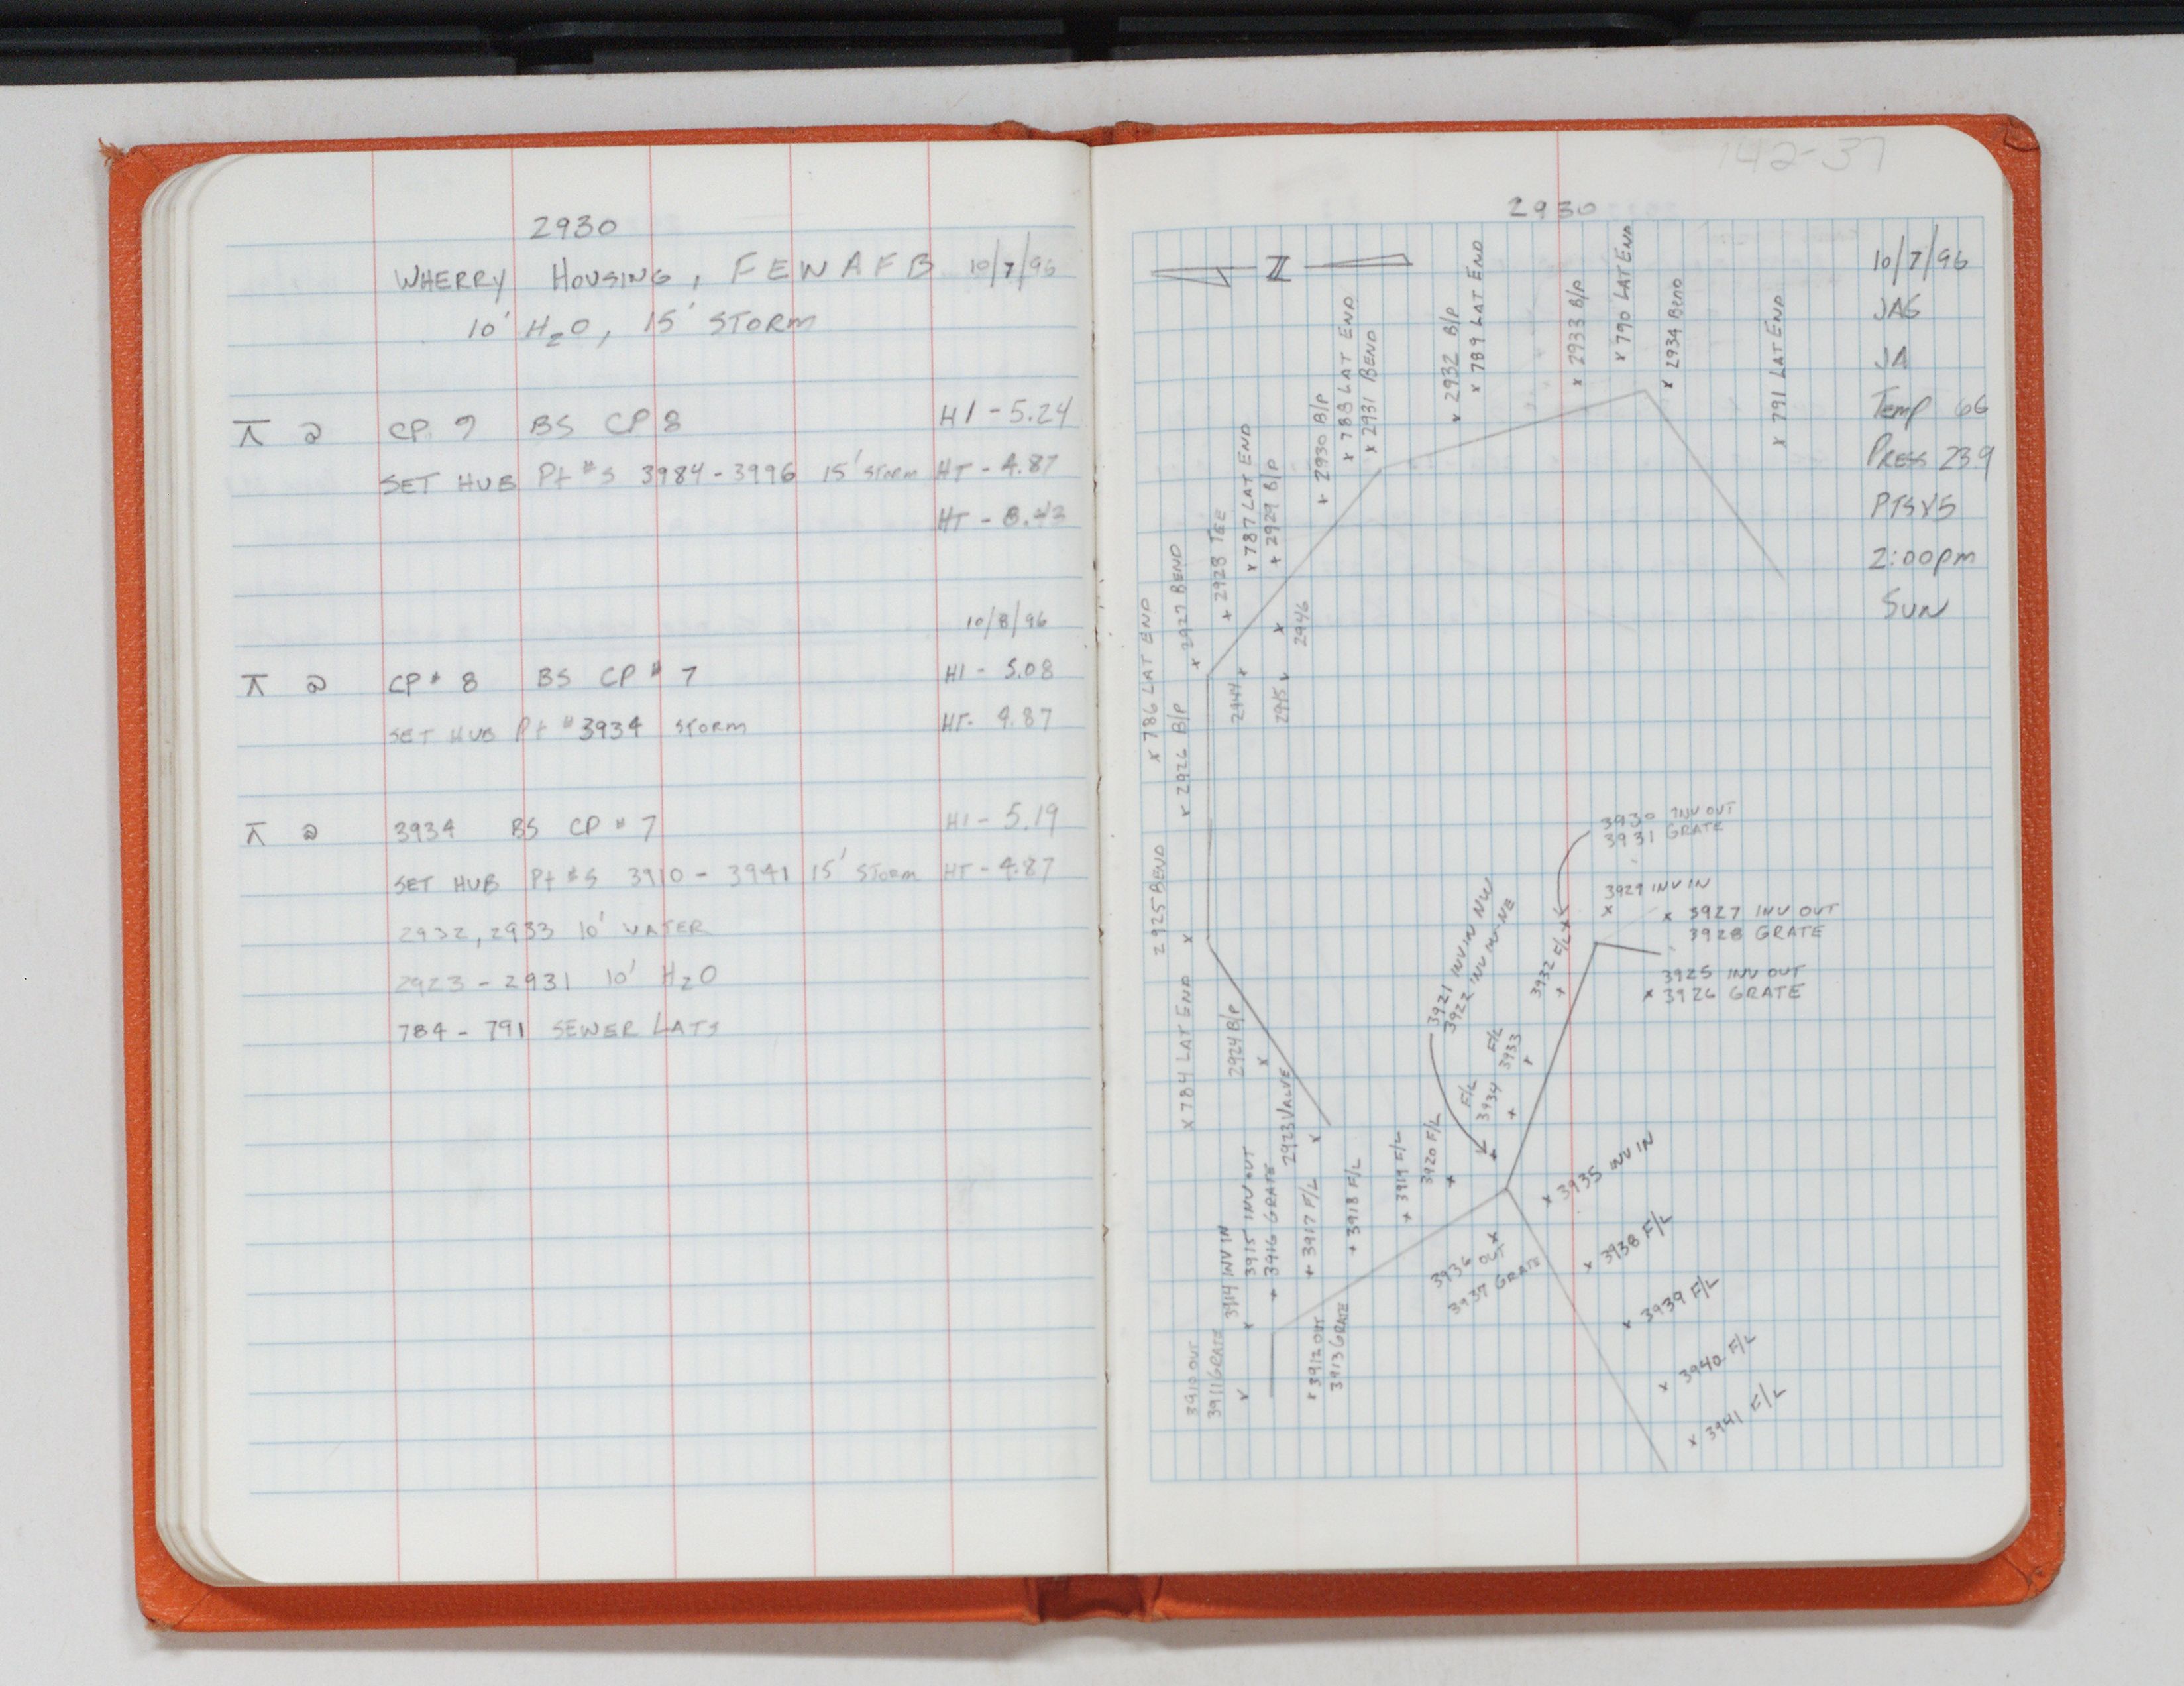 2930
WHERRY HOUSING, FEWAFB 10/7/96
10' H2O, 15' STORM
⊼ @ CP 9 BS CP 8 HI - 5.24
SET HUB Pt #'s 3984 - 3996 15' STORM HT - 4.87
HT -
10/8/96
⊼ @ CP# 8 BS CP # 7 HI - 5.08
SET HUB Pt # 3934 STORM HT- 4.87
⊼ @ 3934 BS CP # 7 HI - 5.19
SET HUB Pt #'s 3910 - 3941 15' STORM HT - 4.87
2932, 2933 10' WATER
2923 - 2931 10' H2O
784 - 791 SEWER LATS
142-37
2930
N
10/7/96
JAG
JA
Temp 66
PRESS 23.9
2:00pm
SUN
x 786 LAT END
x 2927 BEND
x 2926 B/P
+ 2928 TEE
x 787 LAT END
+ 2929 B/P
+ 2930 B/P
x 788 LAT END
x 2931 BEND
x 2932 B/P
x 789 LAT END
x 2933 B/P
x 790 LAT END
x 2934 Bend
x 791 LAT END
2944 x
2945 x
x 2946
2925 BEND x
x 784 LAT END
2924 B/P x
2923 VALVE x
3930 INV OUT
3931 GRATE
x 3929 INV IN
x 3927 INV OUT
3928 GRATE
3925 INV OUT
x 3926 GRATE
3932 F/L x
3921 INV IN NW
3922 INV IN NE
F/L
3933 x
F/L
3934 +
3920 F/L x
+ 3919 F/L
+ 3918 F/L
+ 3917 F/L
x 3915 INV OUT
+ 3916 GRATE
3914 INV IN
3910 OUT
3911 GRATE x
x 3912 OUT
3913 GRATE
x 3935 INV IN
3936 OUT x
3937 GRATE
x 3938 F/L
x 3939 F/L
x 3940 F/L
x 3941 F/L